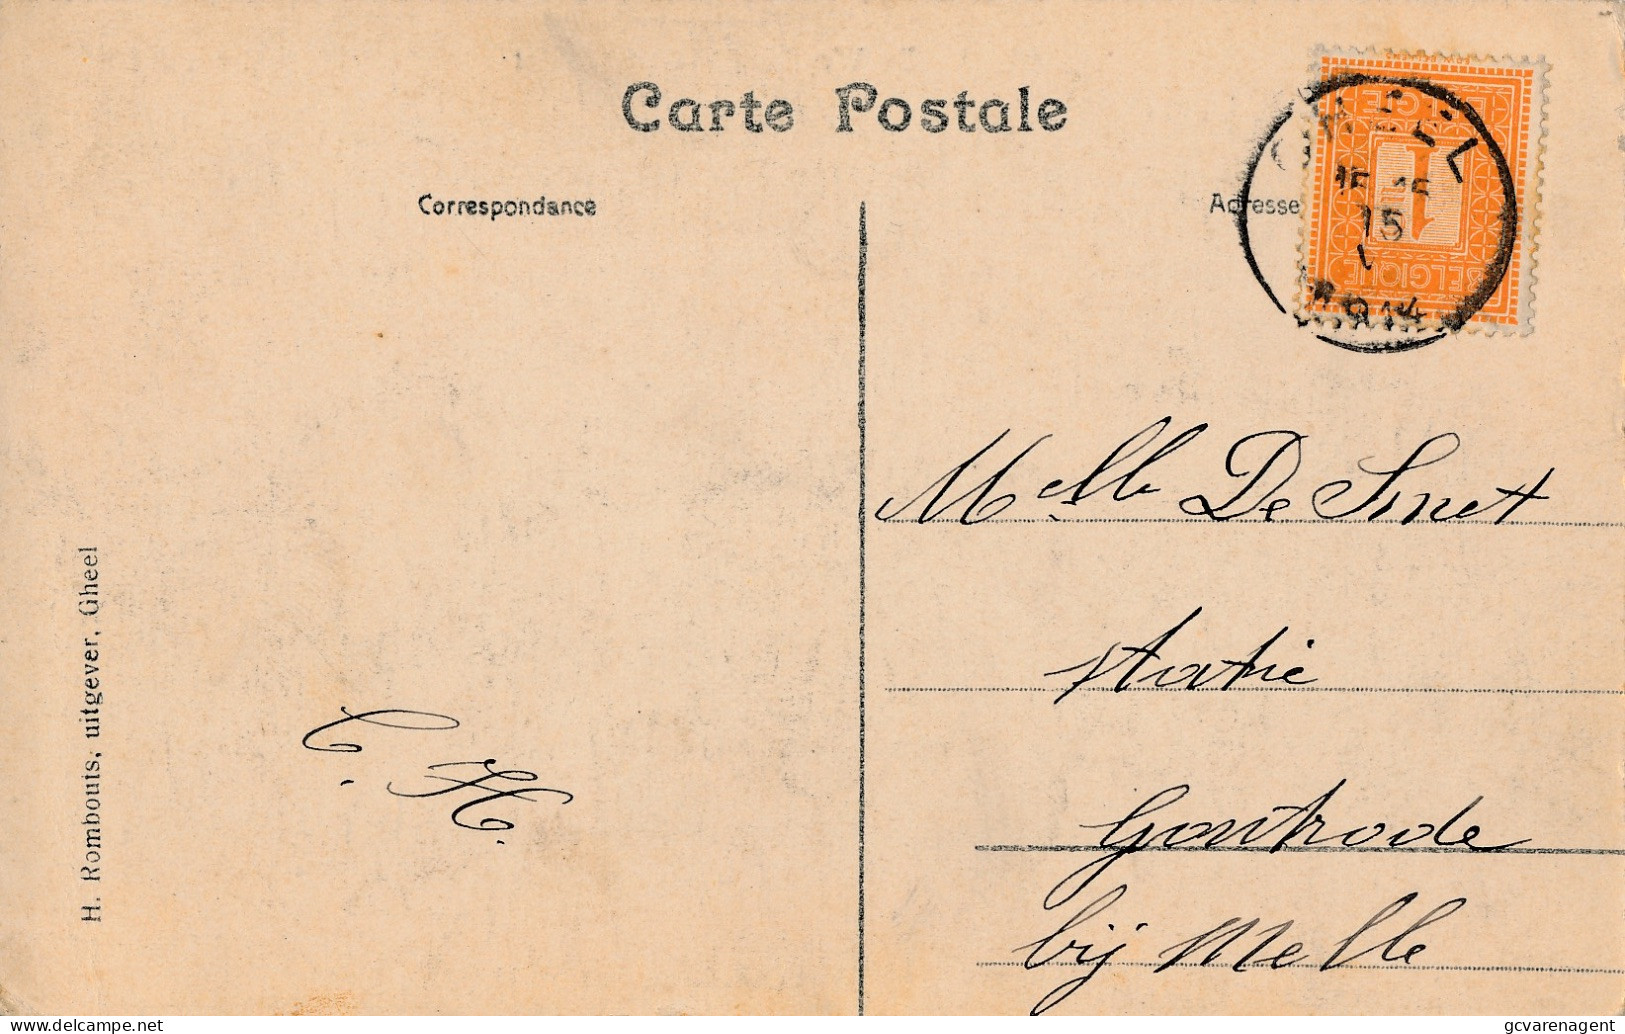 Carte Postale
Correspondance
Adresse
BELGIË
1
BELGIQUE
15
1914
Melle De Smet
statie
Gontrode
bij Melle
C. H.
H. Rombouts, uitgever, Gheel
www.delcampe.net
gcvarenagent